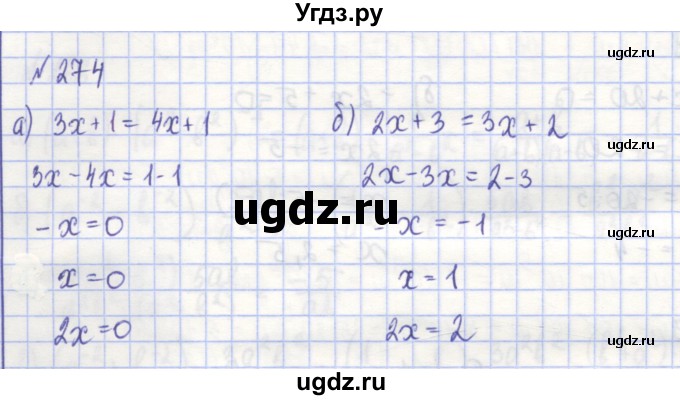 Угдз.ру
ugdz.ru
№ 274
ugdz.ru
а) 3x+1=4x+1
б) 2x+3=3x+2
3x-4x=1-1
2x-3x=2-3
ugdz.ru
-x=0
-x=-1
ugdz.ru
x=0
x=1
2x=0
2x=2
ugdz.ru
ugdz.ru